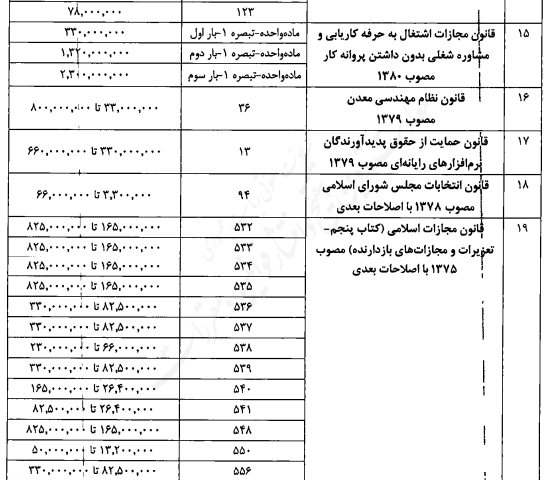 ۱۲۳ ۷۸,۰۰۰,۰۰۰
۱۵ قانون مجازات اشتغال به حرفه کاریابی و مشاوره شغلی بدون داشتن پروانه کار مصوب ۱۳۸۰
ماده‌واحده-تبصره ۱-بار اول ۳۳۰,۰۰۰,۰۰۰
ماده‌واحده-تبصره ۱-بار دوم ۱,۳۲۰,۰۰۰,۰۰۰
ماده‌واحده-تبصره ۱-بار سوم ۲,۳۰۰,۰۰۰,۰۰۰
۱۶ قانون نظام مهندسی معدن
مصوب ۱۳۷۹
۳۶ ۳۳,۰۰۰,۰۰۰ تا ۸۰۰,۰۰۰,۰۰۰
۱۷ قانون حمایت از حقوق پدیدآورندگان
نرم‌افزارهای رایانه‌ای مصوب ۱۳۷۹
۱۳ ۳۳۰,۰۰۰,۰۰۰ تا ۶۶۰,۰۰۰,۰۰۰
۱۸ قانون انتخابات مجلس شورای اسلامی
مصوب ۱۳۷۸ با اصلاحات بعدی
۹۴ ۳,۳۰۰,۰۰۰ تا ۶۶,۰۰۰,۰۰۰
۱۹ قانون مجازات اسلامی (کتاب پنجم-
تعزیرات و مجازات‌های بازدارنده) مصوب
۱۳۷۵ با اصلاحات بعدی
۵۳۲ ۱۶۵,۰۰۰,۰۰۰ تا ۸۲۵,۰۰۰,۰۰۰
۵۳۳ ۱۶۵,۰۰۰,۰۰۰ تا ۸۲۵,۰۰۰,۰۰۰
۵۳۴ ۱۶۵,۰۰۰,۰۰۰ تا ۸۲۵,۰۰۰,۰۰۰
۵۳۵ ۱۶۵,۰۰۰,۰۰۰ تا ۸۲۵,۰۰۰,۰۰۰
۵۳۶ ۸۲,۵۰۰,۰۰۰ تا ۳۳۰,۰۰۰,۰۰۰
۵۳۷ ۸۲,۵۰۰,۰۰۰ تا ۳۳۰,۰۰۰,۰۰۰
۵۳۸ ۶۶,۰۰۰,۰۰۰ تا ۲۳۰,۰۰۰,۰۰۰
۵۳۹ ۸۲,۵۰۰,۰۰۰ تا ۳۳۰,۰۰۰,۰۰۰
۵۴۰ ۲۶,۴۰۰,۰۰۰ تا ۱۶۵,۰۰۰,۰۰۰
۵۴۱ ۲۶,۴۰۰,۰۰۰ تا ۸۲,۵۰۰,۰۰۰
۵۴۸ ۱۶۵,۰۰۰,۰۰۰ تا ۸۲۵,۰۰۰,۰۰۰
۵۵۰ ۱۳,۲۰۰,۰۰۰ تا ۵۰,۰۰۰,۰۰۰
۵۵۶ ۸۲,۵۰۰,۰۰۰ تا ۳۳۰,۰۰۰,۰۰۰